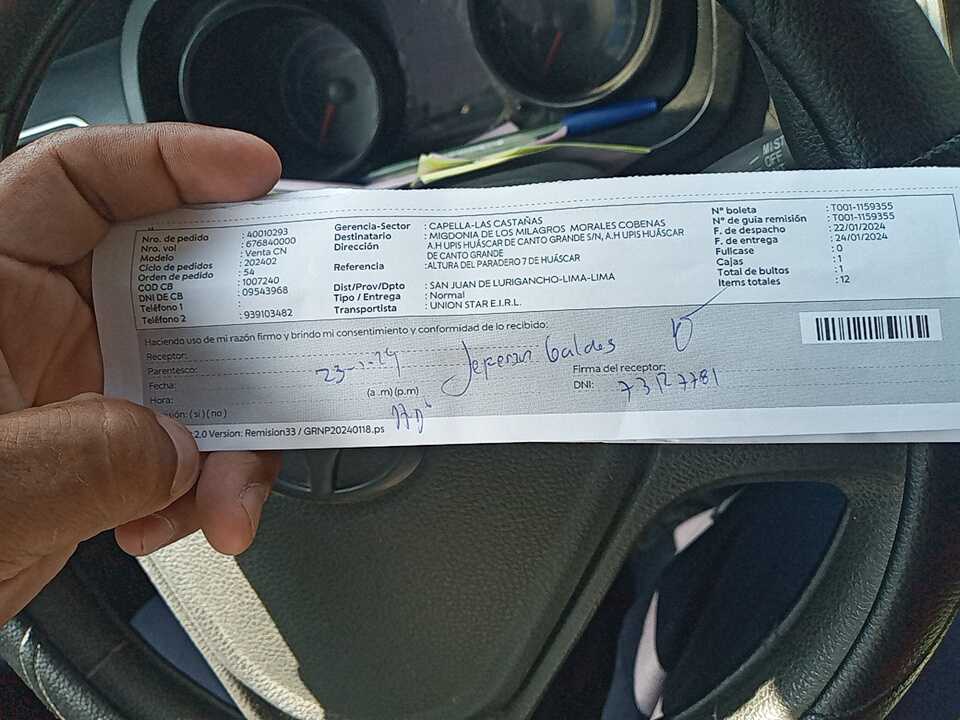 Nro. de pedido : 40010293
Nro. vol : 676840000
Modelo : Venta CN
Ciclo de pedidos : 202402
Orden de pedido : 54
COD CB : 1007240
DNI DE CB : 09543968
Teléfono 1 :
Teléfono 2 : 939103482
Gerencia-Sector : CAPELLA-LAS CASTAÑAS
Destinatario : MIGDONIA DE LOS MILAGROS MORALES COBENAS
Dirección : A.H UPIS HUÁSCAR DE CANTO GRANDE S/N, A.H UPIS HUÁSCAR
DE CANTO GRANDE
Referencia : ALTURA DEL PARADERO 7 DE HUÁSCAR
Dist/Prov/Dpto : SAN JUAN DE LURIGANCHO-LIMA-LIMA
Tipo / Entrega : Normal
Transportista : UNION STAR E.I.R.L.
N° boleta : T001-1159355
N° de guía remisión : T001-1159355
F. de despacho : 22/01/2024
F. de entrega : 24/01/2024
Fullcase : 0
Cajas : 1
Total de bultos : 1
Items totales : 12
Haciendo uso de mi razón firmo y brindo mi consentimiento y conformidad de lo recibido:
Receptor:
Parentesco:
Fecha:
Hora: (a .m) (p.m)
(si) (no)
2.0 Version: Remision33 / GRNP20240118.ps
Firma del receptor:
DNI:
OFF